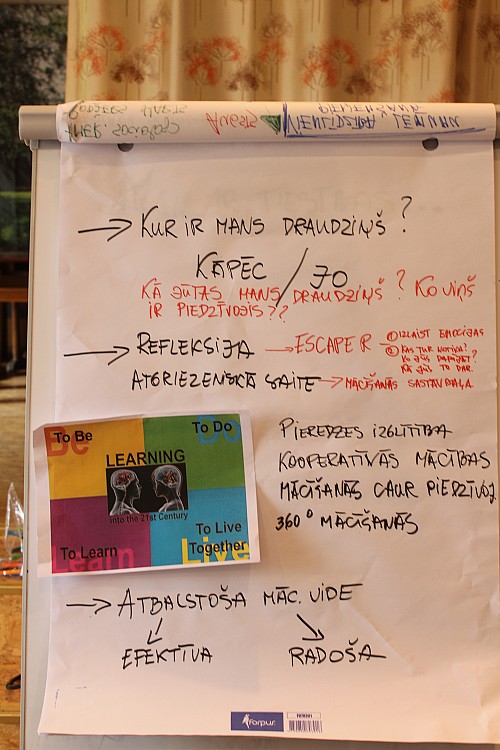 STARPA
→ KUR IR MANS DRAUDZIŅŠ?
KĀPĒC / JO
KĀ JŪTAS MANS DRAUDZIŅŠ? KO VIŅŠ
IR PIEDZĪVOJIS??
→ REFLEKSIJA → ESCAPER – ① IZLAIST EMOCIJAS
② KAS TUR NOTIKA?
KĀ JŪS TO DAR.
ATGRIEZENISKĀ SAITE → MĀCĪŠANĀS SASTĀVDAĻA
To Be
Be
To Do
Do
LEARNING
into the 21st Century
To Learn
Learn
To Live
Together
Live
PIEREDZES IZGLĪTĪBA
KOOPERATĪVĀS MĀCĪBAS
MĀCĪŠANĀS CAUR PIEDZĪVOJ
360° MĀCĪŠANĀS
→ ATBALSTOŠA MĀC. VIDE
EFEKTĪVA RADOŠA
forpus